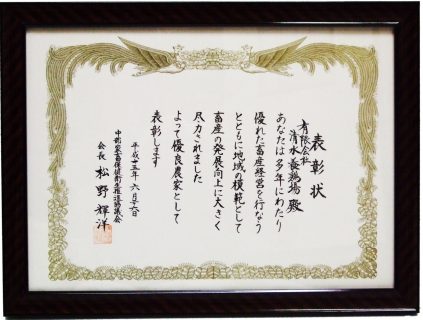 表彰状
有限会社
清水養鶏場 殿
あなたは多年にわたり
優れた畜産経営を行なう
とともに地域の模範として
畜産の発展向上に大きく
尽力されました
よって優良農家として
表彰します
平成十五年 六月十六日
中部家畜保健衛生推進協議会
会長 松野輝洋